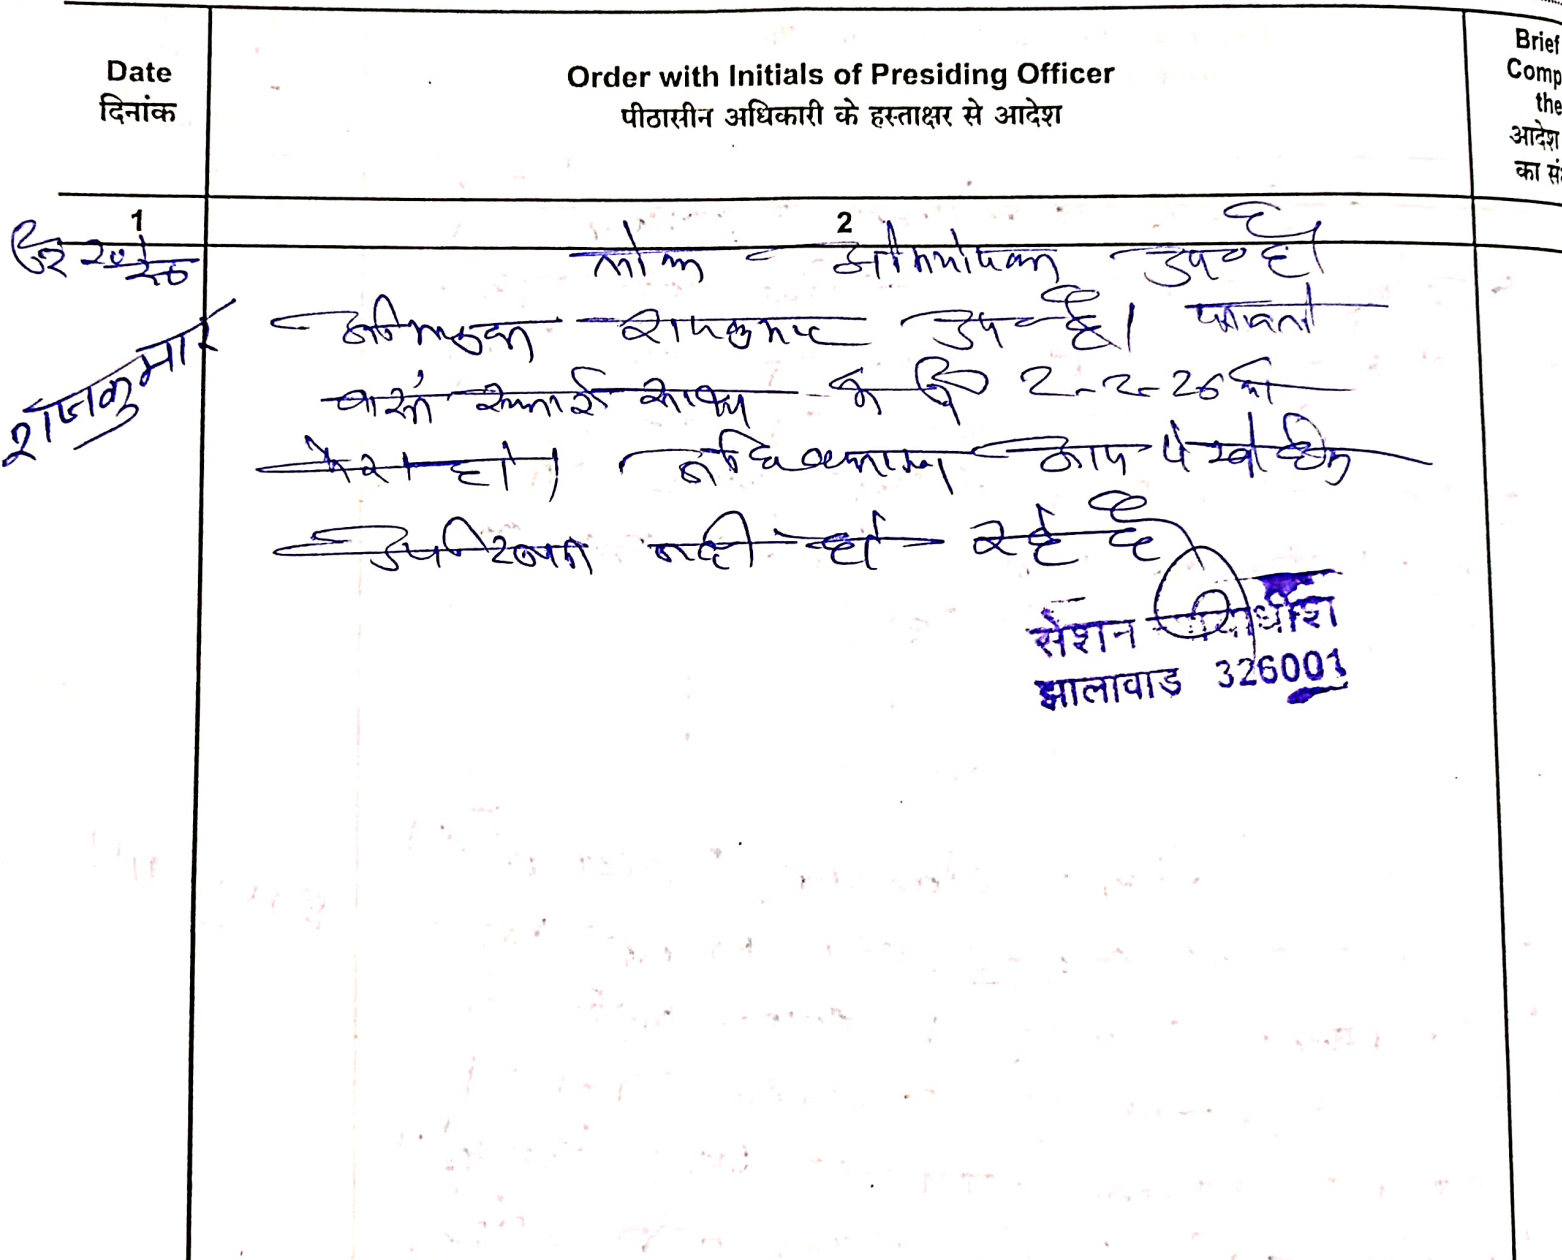 Date
दिनांक
Order with Initials of Presiding Officer
पीठासीन अधिकारी के हस्ताक्षर से आदेश
Brief
Comp
the
आदेश
का सं
1
2
लोक अभियोजक उप० है।
अभियुक्त राजकुमार उप० है। पत्रावली
वास्ते साक्ष्य दि 2-2-26 को
पेश हो। अधिवक्तागण
उपस्थित नही हो रहे है
राजकुमार
सेशन न्यायाधीश
झालावाड 326001